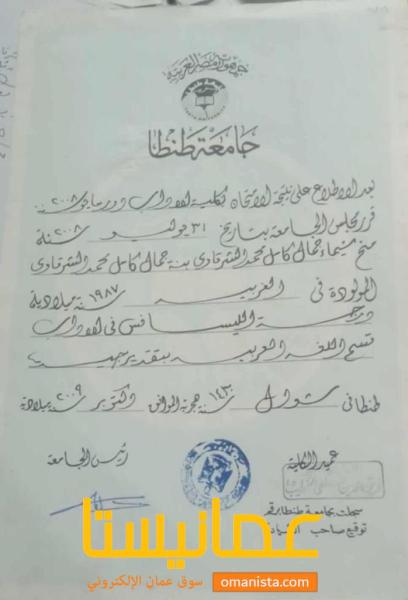 جمهورية مصر العربية
جامعة طنطا
بعد الاطلاع على نتيجة الامتحان لكلية الآداب دور مايو سنة ٢٠٠٨
قرر مجلس الجامعة بتاريخ ٣١ يوليو سنة ٢٠٠٨
منح شيماء جمال كامل محمد الشرقاوى بنة جمال كامل محمد الشرقاوى
المولودة فى الغربية سنة ١٩٨٧ ميلادية
درجة الليسانس فى الآداب
قسم اللغة العربية بتقدير جيد
طنطا فى شوال سنة ١٤٣٠ هجرية الموافق اكتوبر سنة ٢٠٠٩ ميلادية
عميد الكلية
رئيس الجامعة
سجلت بجامعة طنطا برقم
توقيع صاحب الشهادة
عمانيستا
سوق عمان الإلكتروني
omanista.com